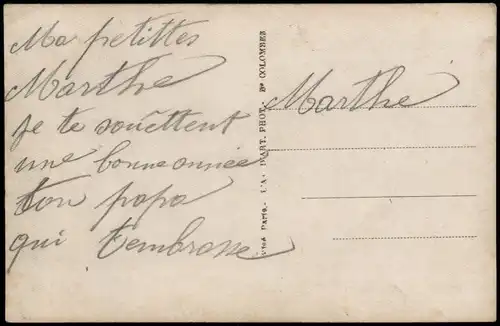 Ma petittes
Marthe
je te souettent
une bonne année
ton papa
qui t'embrasse
PARIS. - L'A. D'ART. PHOT. - Bs COLOMBES
Marthe